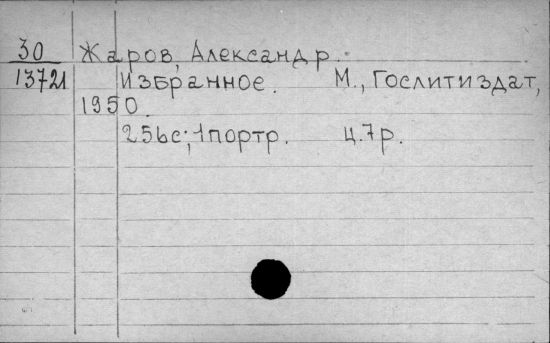 30 Жаров, Александр.
13721 Избранное. М., Гослитиздат,
1950.
256с.; 1портр. ц.7р.